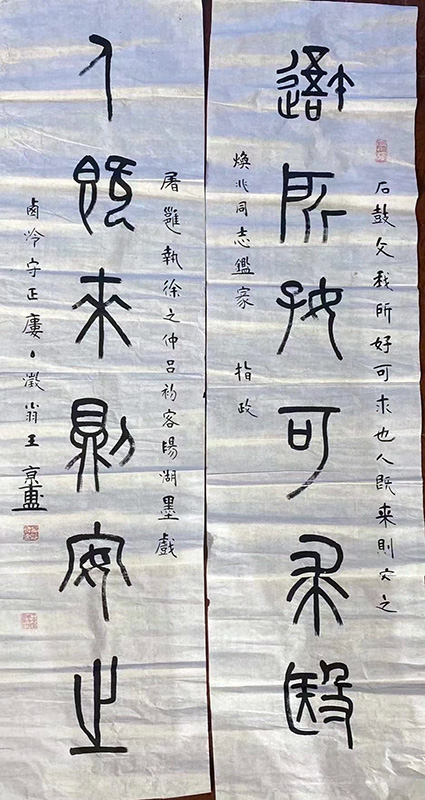 石鼓文我所好可求也人既来則安之
所好可求殹
煥兆同志鑑家 指政
屠雝執徐之仲呂客陽湖墨戲
人既來則安之
鹵泠守正廔澂翁王京盙